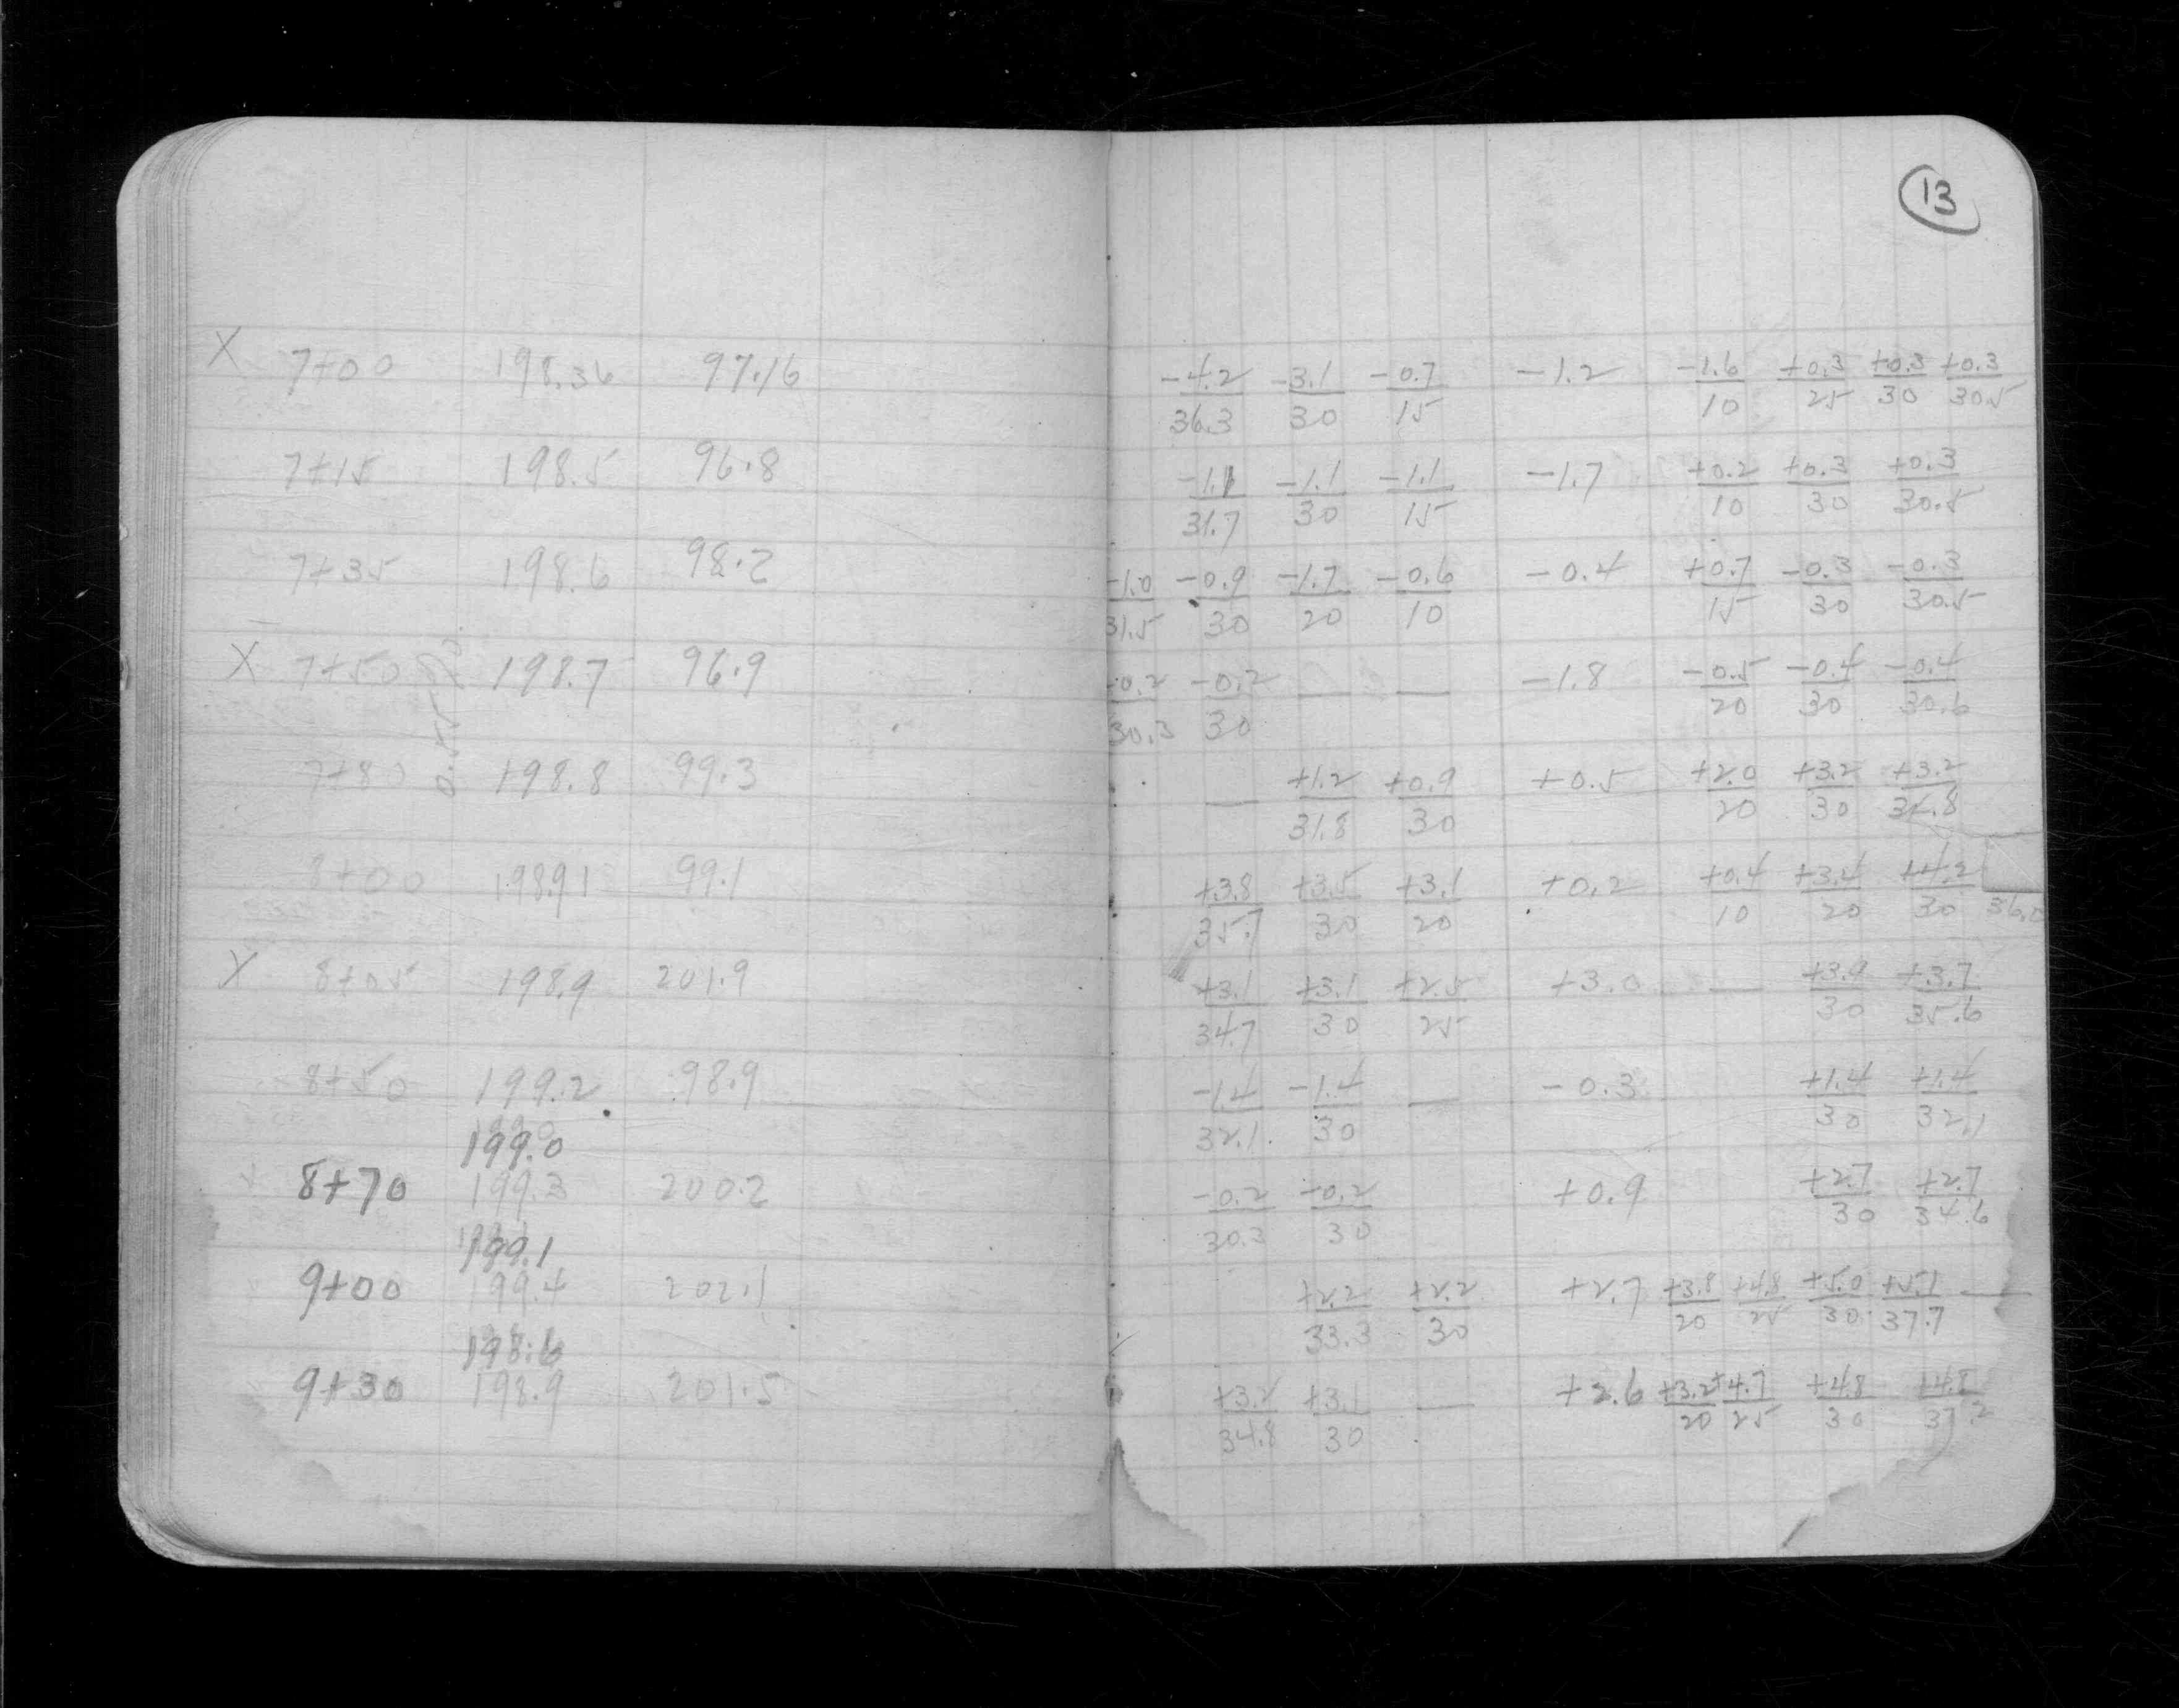 13
X 7+00 198.36 97.16 -4.2/36.3 -3.1/30 -0.7/15 -1.2 -1.6/10 +0.3/25 +0.3/30 +0.3/30.5
7+15 198.5 96.8 -1.1/31.7 -1.1/30 -1.1/15 -1.7 +0.2/10 +0.3/30 +0.3/30.5
7+35 198.6 98.2 -1.0/31.5 -0.9/30 -1.7/20 -0.6/10 -0.4 +0.7/15 -0.3/30 -0.3/30.5
X 7+50 198.7 96.9 -0.2/30.3 -0.2/30 — — -1.8 -0.5/20 -0.4/30 -0.4/30.6
7+80 198.8 99.3 — +1.2/31.8 +0.9/30 +0.5 +2.0/20 +3.2/30 +3.2/34.8
8+00 198.91 99.1 +3.8/35.7 +3.5/30 +3.1/20 +0.2 +0.4/10 +3.4/20 +4.2/30
X 8+05 198.9 201.9 +3.1/34.7 +3.1/30 +2.5/25 +3.0 — +3.9/30 +3.7/35.6
8+50 199.2 98.9 -1.4/32.1 -1.4/30 — -0.3 +1.4/30 +1.4/32.1
199.0
8+70 199.3 200.2 -0.2/30.3 -0.2/30 +0.9 +2.7/30 +2.7/34.6
199.1
9+00 199.4 202.1 +2.2/33.3 +2.2/30 +2.7 +3.8/20 +4.8/25 +5.0/30 +5.1/37.7 —
198.6
9+30 198.9 201.5 +3.2/34.8 +3.1/30 — +2.6 +3.2/20 +4.7/25 +4.8/30 +4.8/37.2